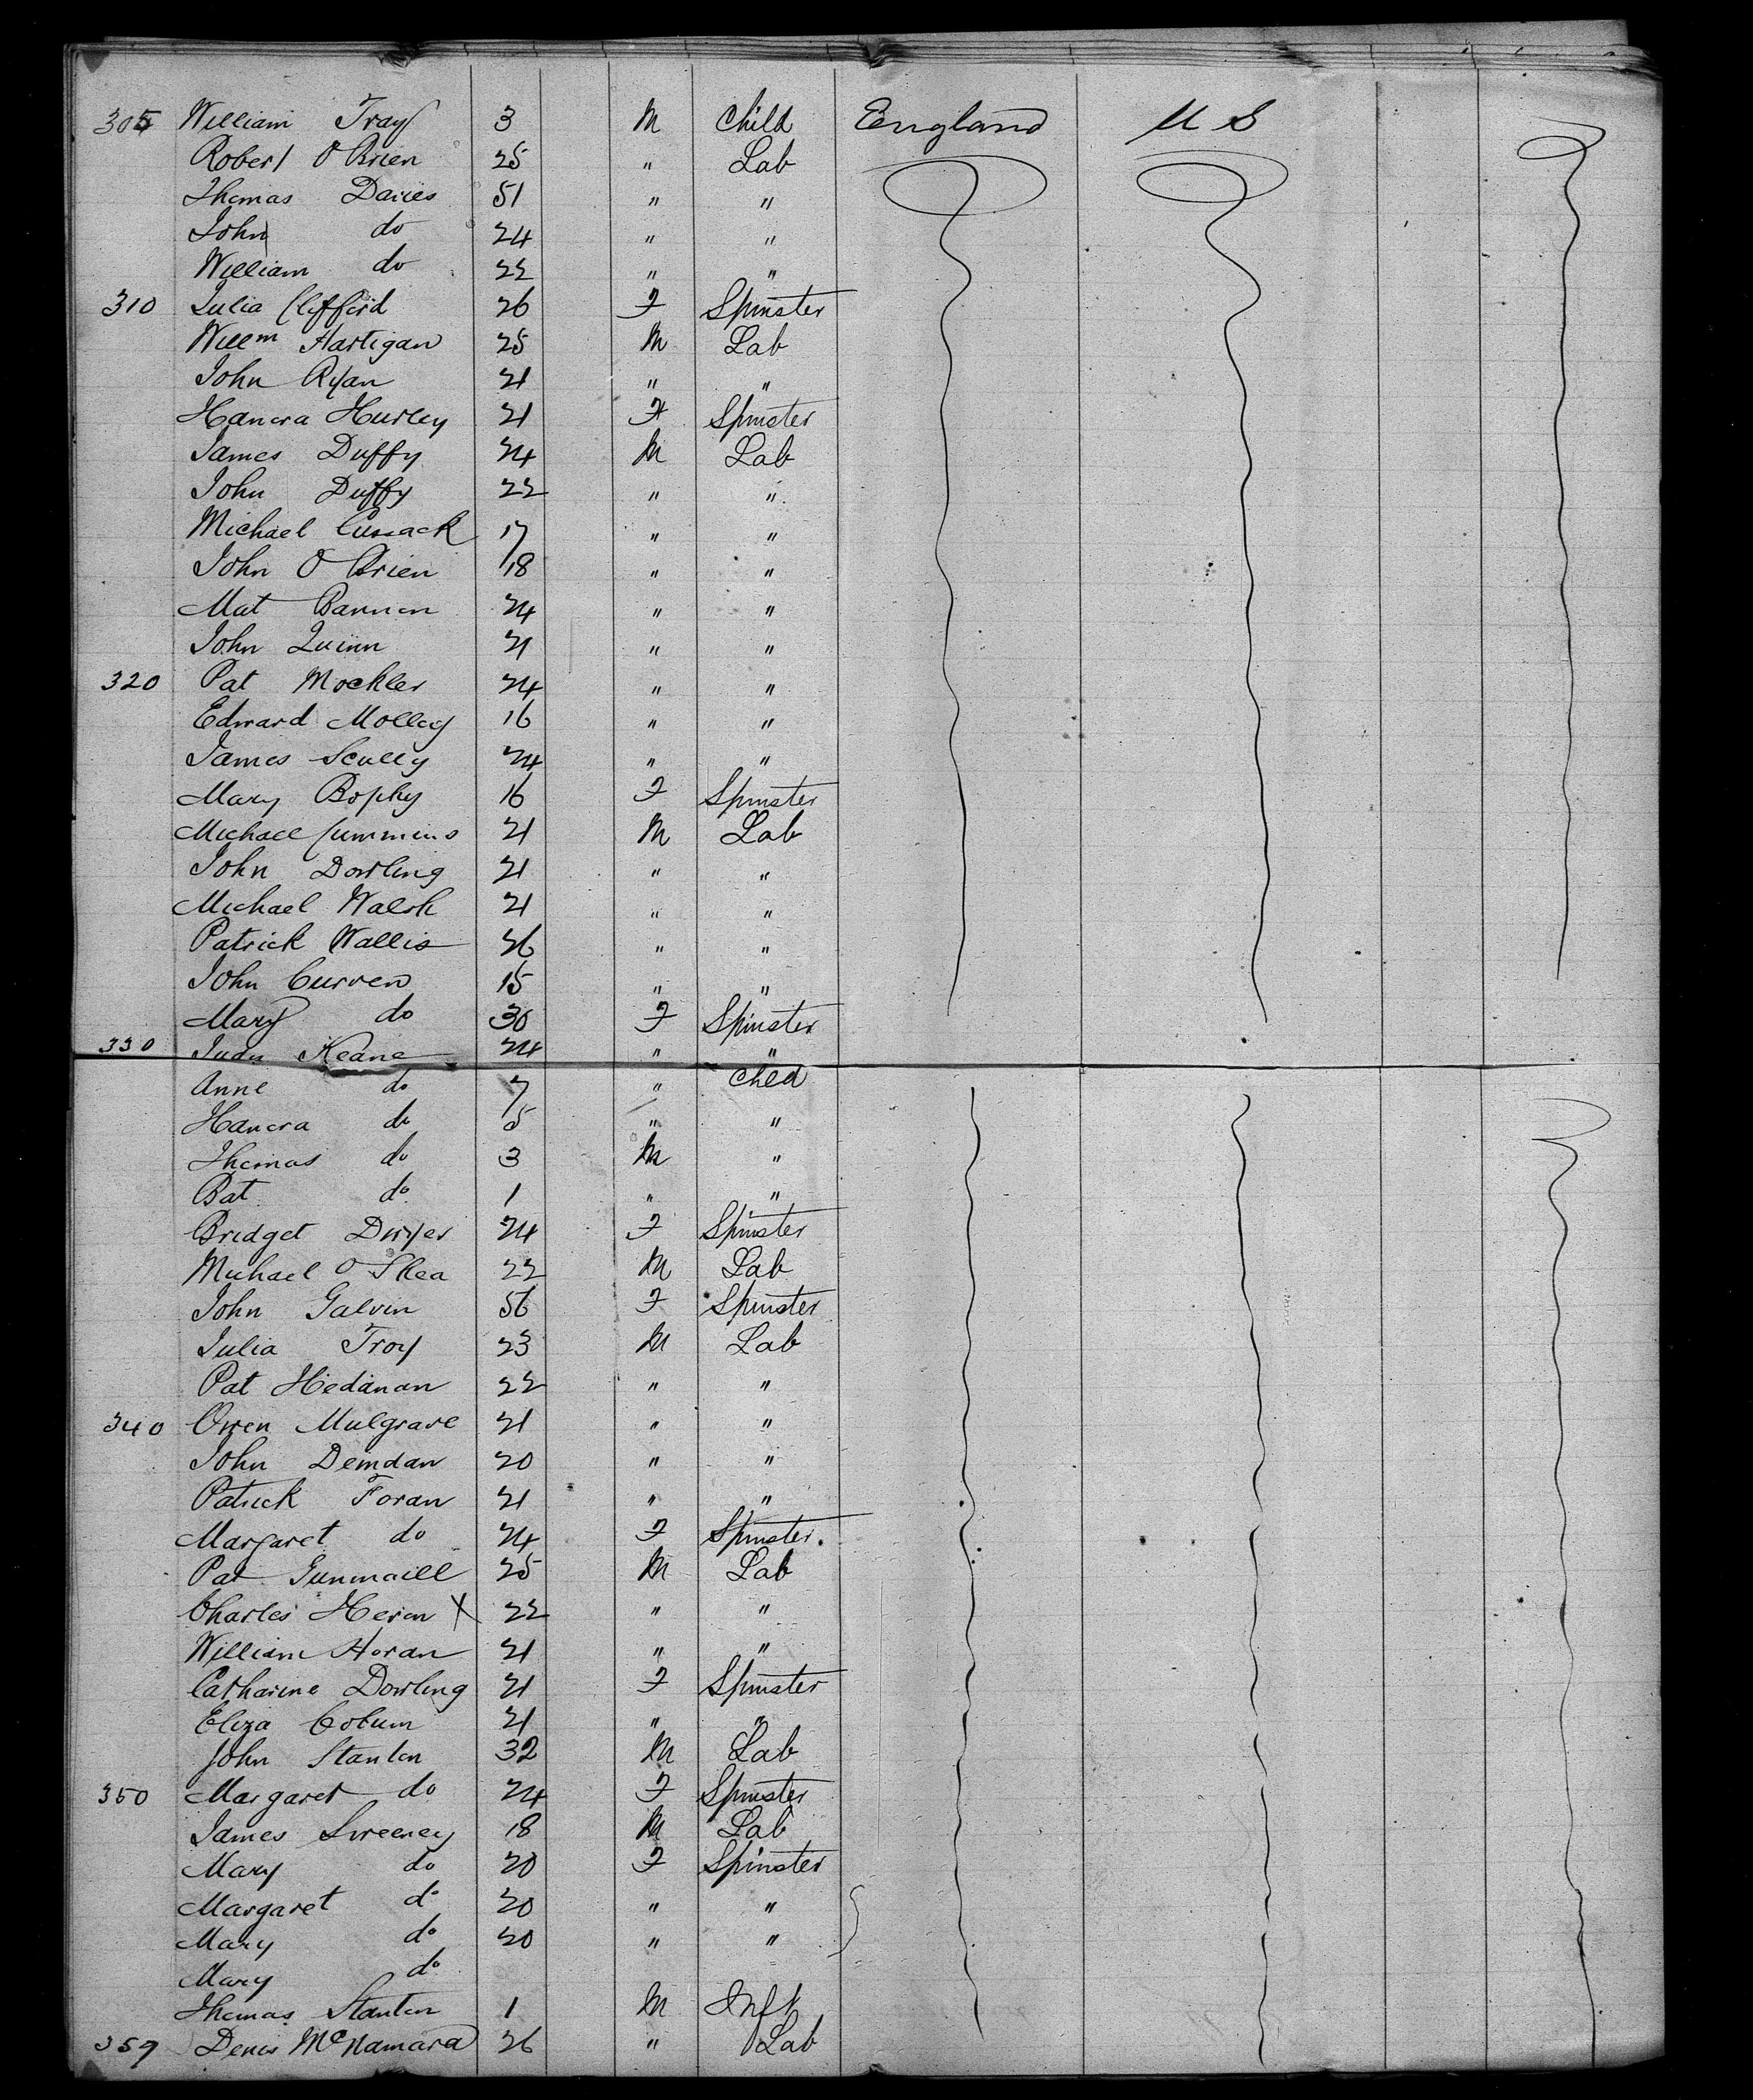 305 William Troy 3 M Child England U S
Robert O Brien 25 " Lab
Thomas Davies 51 " "
John do 24 " "
William do 22 " "
310 Julia Clifford 26 F Spinster
Willm Hartigan 25 M Lab
John Ryan 21 " "
Hanora Hurley 21 F Spinster
James Duffy 24 M Lab
John Duffy 22 " "
Michael Cussack 17 " "
John O Brien 18 " "
Mat Bannon 24 " "
John Quinn 21 " "
320 Pat Mockler 24 " "
Edward Molloy 16 " "
James Scully 24 " "
Mary Bophy 16 F Spinster
Michael Cummins 21 M Lab
John Dowling 21 " "
Michael Walsh 21 " "
Patrick Wallis 26 " "
John Curren 15 " "
Mary do 30 F Spinster
330 Judy Keane 24 " "
Anne do 7 " Child
Hanora do 5 " "
Thomas do 3 M "
Bat do 1 " "
Bridget Dwyer 24 F Spinster
Michael O Shea 22 M Lab
John Galvin 56 F Spinster
Julia Troy 23 M Lab
Pat Hedinan 22 " "
340 Owen Mulgrave 21 " "
John Deindan 20 " "
Patrick Foran 21 " "
Margaret do 24 F Spinster.
Pat 25 M Lab
Charles Heron X 22 " "
William Horan 21 " "
Catharine Dowling 21 F Spinster
Eliza Cobum 21 " "
John Stanton 32 M Lab
350 Margaret do 24 F Spinster
James Sweeney 18 M Lab
Mary do 20 F Spinster
Margaret do 20 " "
Mary do 20 " "
Mary do
Thomas Stanton 1 M Inft
357 Denis McNamara 26 " Lab